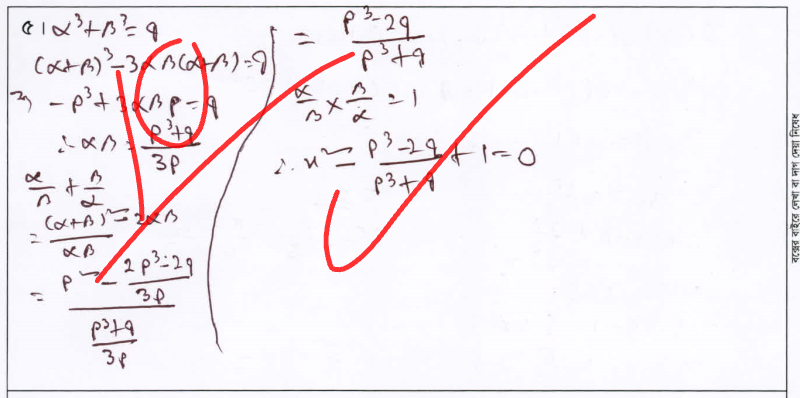 (1 α³+β³=q
(α+β)³-3αβ(α+β)=q
⇒ -p³+3αβp=q
∴ αβ = (p³+q)/3p
α/β + β/α
= ((α+β)²-2αβ)/αβ
= (p² - (2p³-2q)/3p)/((p³+q)/3p)
= (p³-2q)/(p³+q)
α/β × β/α = 1
∴ x² = (p³-2q)/(p³+q) + 1 = 0
বক্সের বাইরে লেখা বা দাগ দেয়া নিষেধ